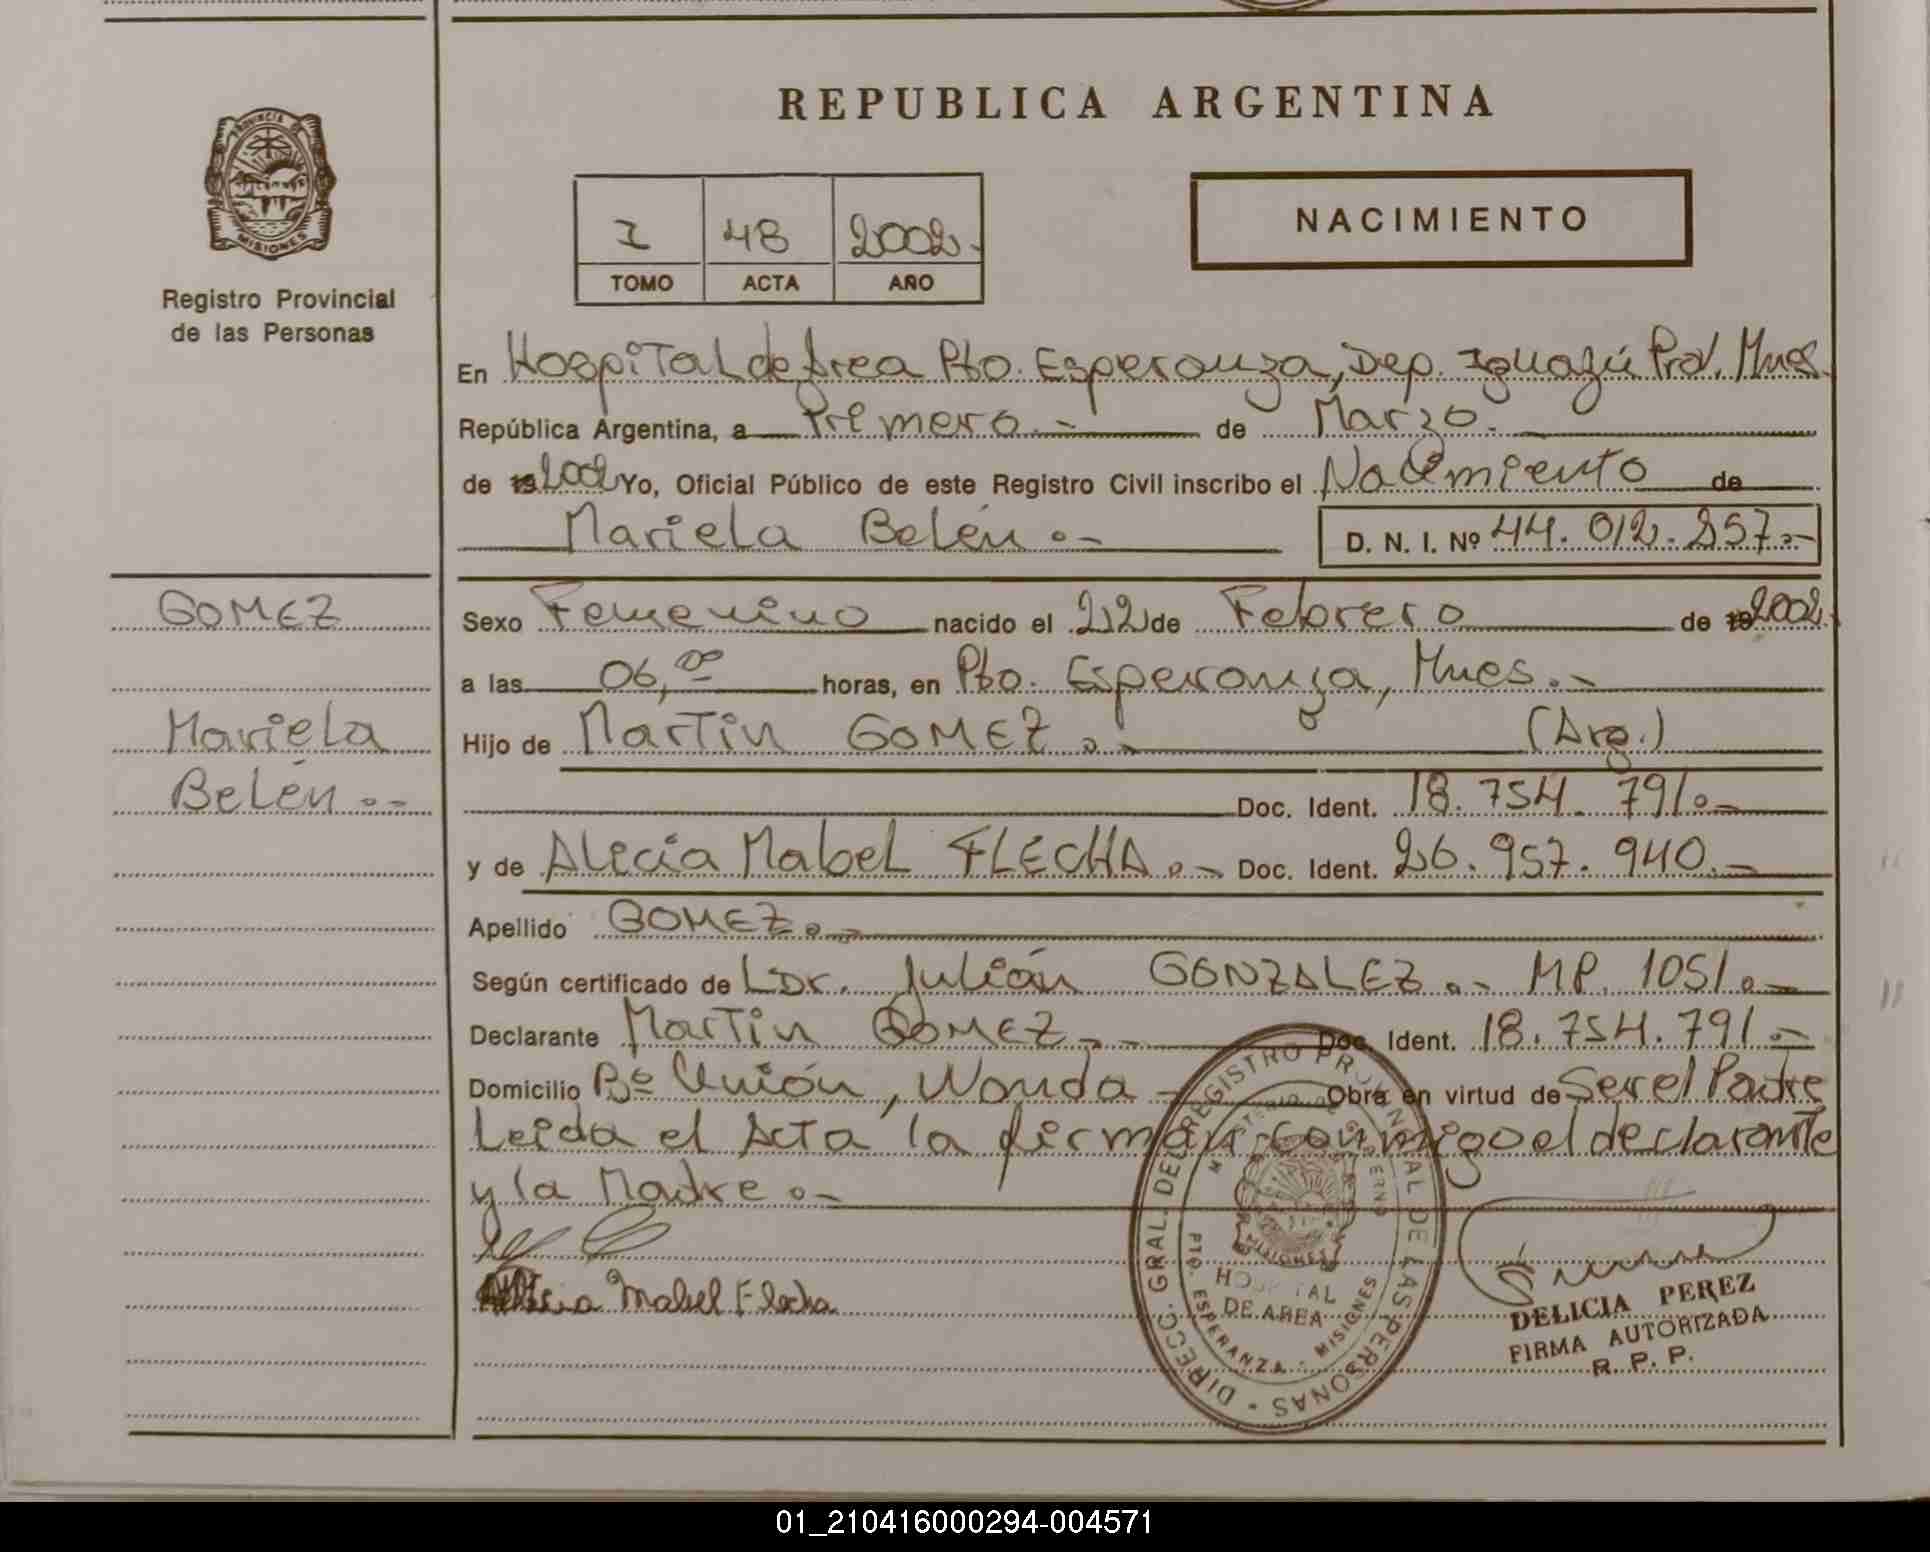 REPUBLICA ARGENTINA
PROVINCIA DE
MISIONES
Registro Provincial
de las Personas
I 48 2002.-
TOMO ACTA AÑO
NACIMIENTO
En Hospital de Area Pto. Esperanza, Dep. Iguazú Prov. Mnes.
República Argentina, a Primero.- de Marzo.
de 19 2002 Yo, Oficial Público de este Registro Civil inscribo el Nacimiento de
Mariela Belén.-
D. N. I. Nº 44.012.257.-
GOMEZ
Mariela
Belén.-
Sexo Femenino nacido el 22 de Febrero de 19 2002.
a las 06,00 horas, en Pto. Esperanza, Mnes.-
Hijo de Martin GOMEZ.- (Arg.)
Doc. Ident. 18.754.791.-
y de Alicia Mabel FLECHA.- Doc. Ident. 26.957.940.-
Apellido GOMEZ.-
Según certificado de L Dr. Julián GONZALEZ.- MP. 1051.-
Declarante Martin GOMEZ.- Doc. Ident. 18.754.791.-
Domicilio Bº Unión, Wanda - Obra en virtud de Ser el Padre
Leida el Acta la firman conmigo el declarante
y la Madre.-
Alicia Mabel Flecha
DIRECC. GRAL. DEL REGISTRO PROVINCIAL DE LAS PERSONAS
MINISTERIO DE GOBIERNO
MISIONES
HOSPITAL
DE AREA
PTO. ESPERANZA - MISIONES
DELICIA PEREZ
FIRMA AUTORIZADA
R. P. P.
01_210416000294-004571